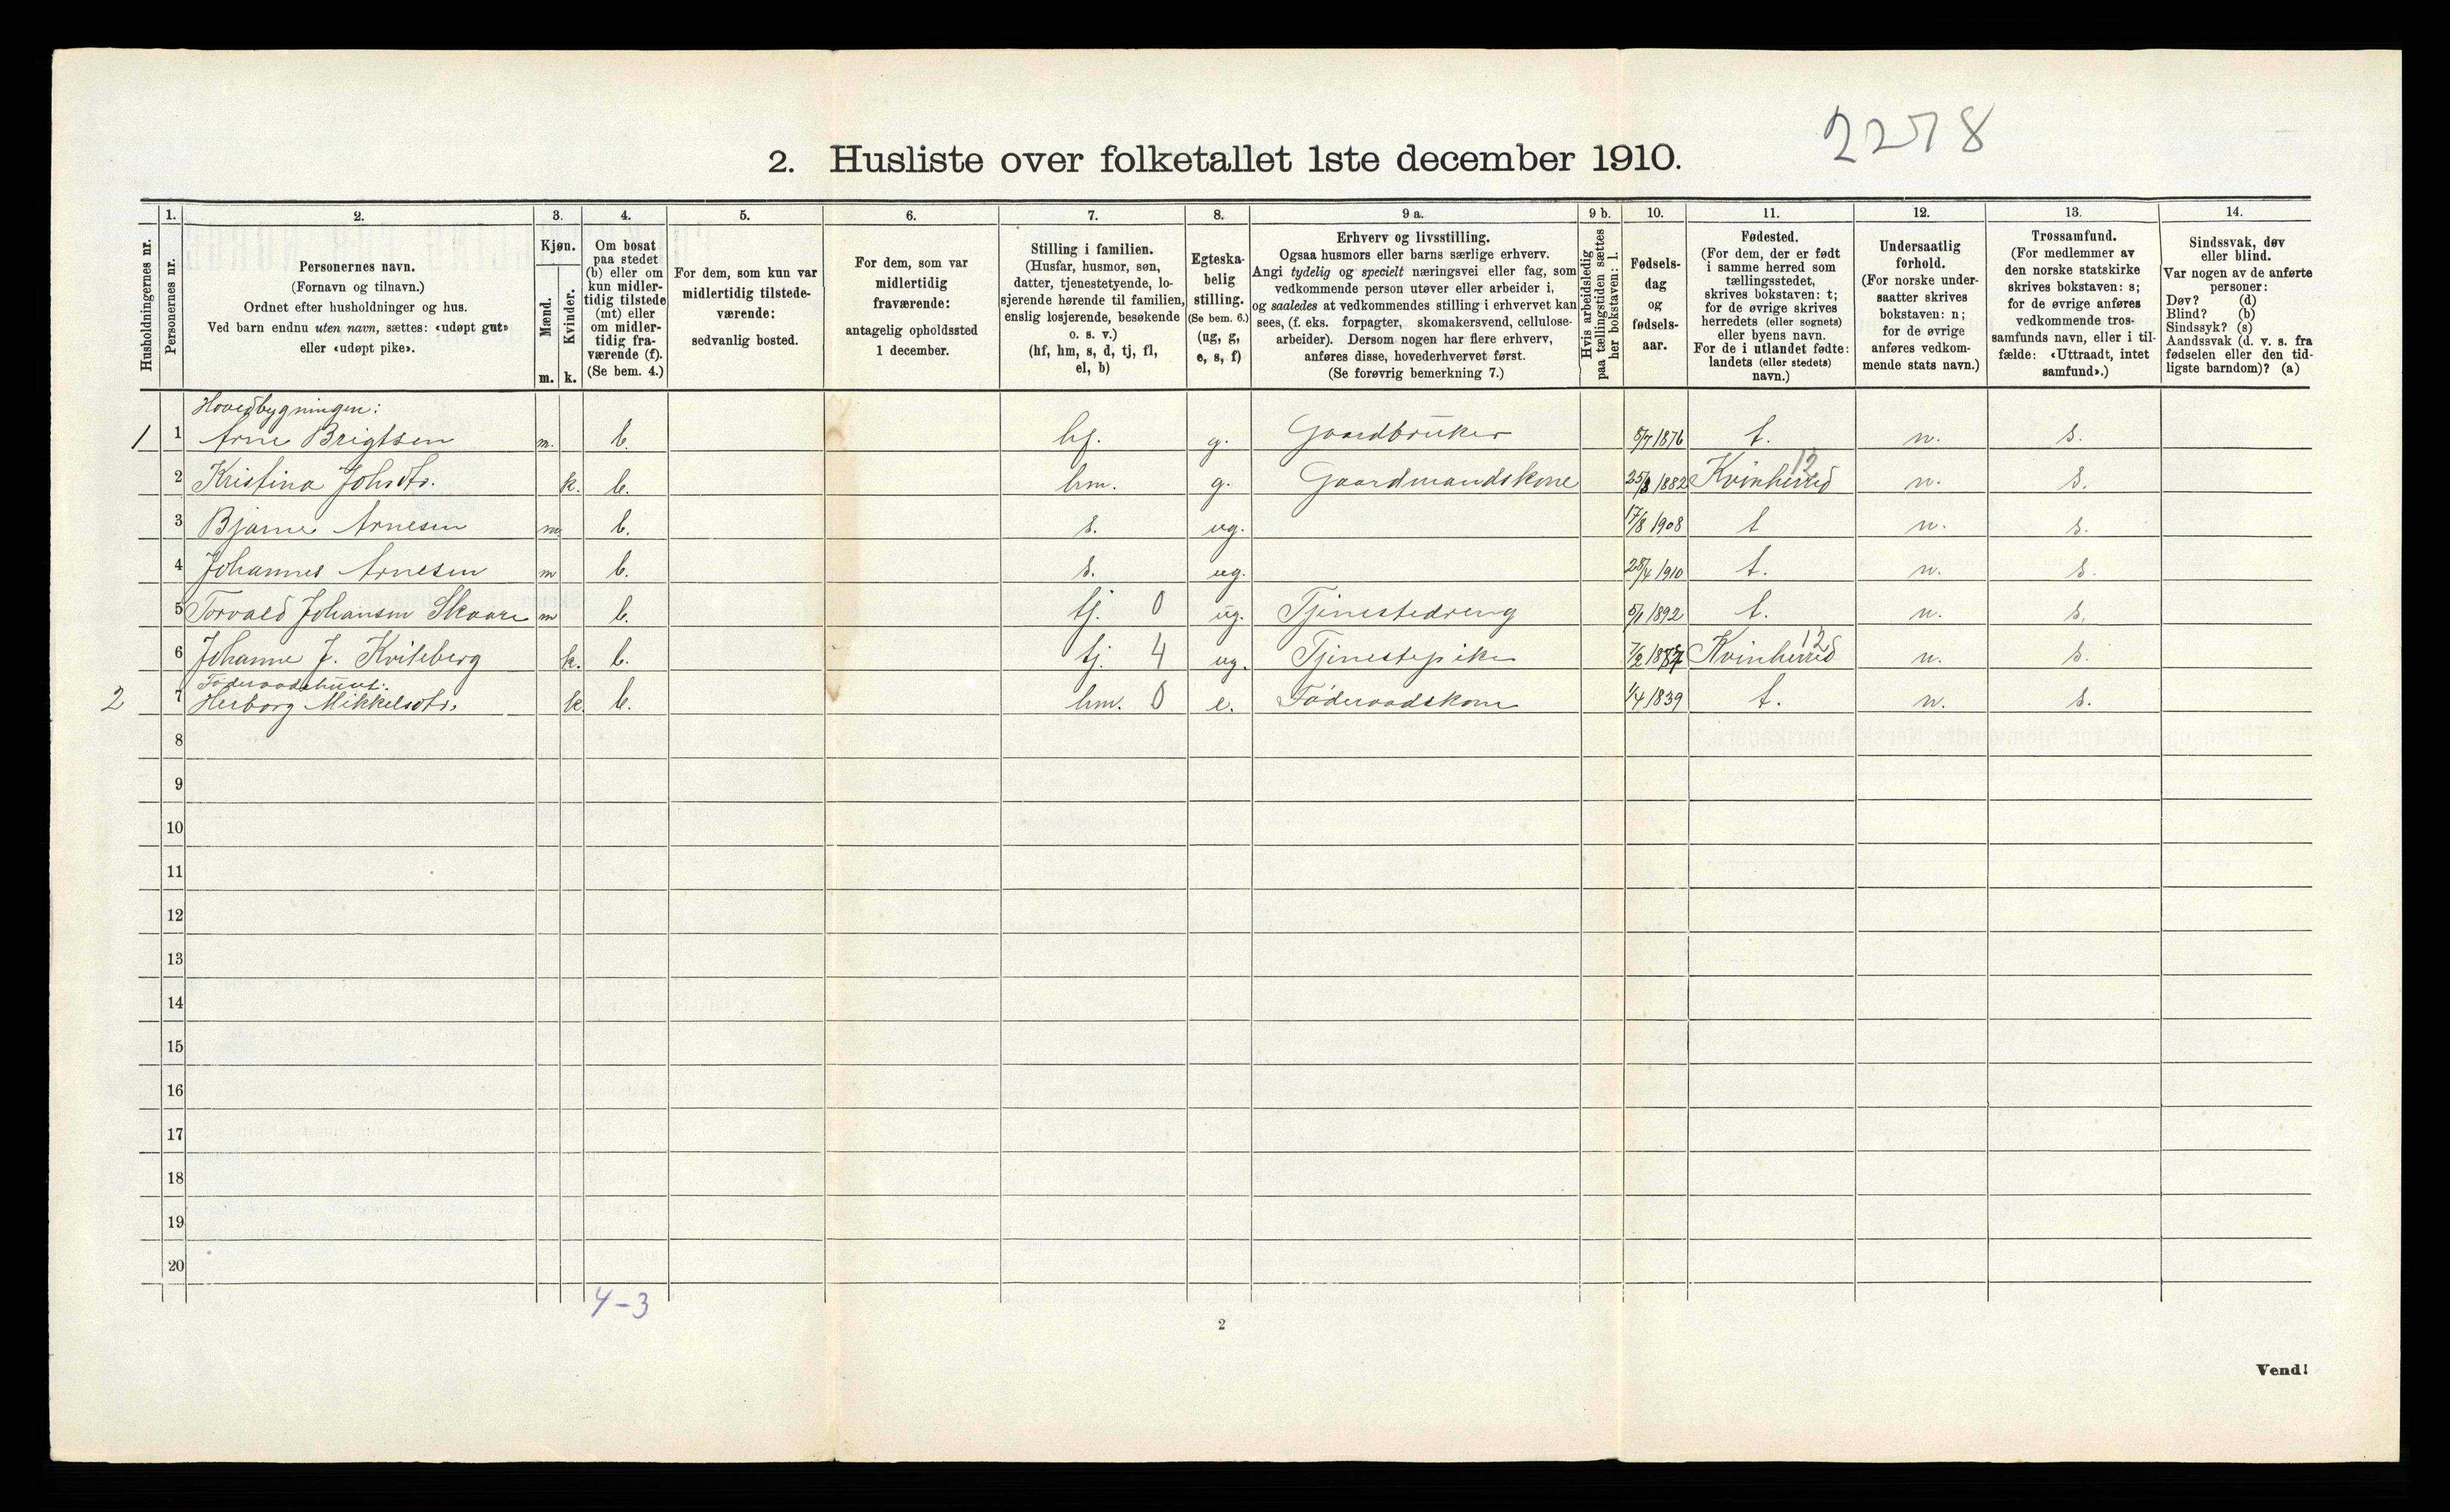 2278
2. Husliste over folketallet 1ste december 1910.
Husholdningernes nr.
1. Personernes nr.
2. Personernes navn.
(Fornavn og tilnavn.)
Ordnet efter husholdninger og hus.
Ved barn endnu uten navn, sættes: «udøpt gut»
eller «udøpt pike».
3. Kjøn.
Mænd. m.
Kvinder. k.
4. Om bosat
paa stedet
(b) eller om
kun midler-
tidig tilstede
(mt) eller
om midler-
tidig fra-
værende (f).
(Se bem. 4.)
5. For dem, som kun var
midlertidig tilstede-
værende:
sedvanlig bosted.
6. For dem, som var
midlertidig
fraværende:
antagelig opholdssted
1 december.
7. Stilling i familien.
(Husfar, husmor, søn,
datter, tjenestetyende, lo-
sjerende hørende til familien,
enslig losjerende, besøkende
o. s. v.)
(hf, hm, s, d, tj, fl,
el, b)
8. Egteska-
belig
stilling.
(Se bem. 6.)
(ug, g,
e, s, f)
9 a. Erhverv og livsstilling.
Ogsaa husmors eller barns særlige erhverv.
Angi tydelig og specielt næringsvei eller fag, som
vedkommende person utøver eller arbeider i,
og saaledes at vedkommendes stilling i erhvervet kan
sees, (f. eks. forpagter, skomakersvend, cellulose-
arbeider). Dersom nogen har flere erhverv,
anføres disse, hovederhvervet først.
(Se forøvrig bemerkning 7.)
9 b. Hvis arbeidsledig
paa tællingstiden sættes
her bokstaven: l.
10. Fødsels-
dag
og
fødsels-
aar.
11. Fødested.
(For dem, der er født
i samme herred som
tællingsstedet,
skrives bokstaven: t;
for de øvrige skrives
herredets (eller sognets)
eller byens navn.
For de i utlandet fødte:
landets (eller stedets)
navn.)
12. Undersaatlig
forhold.
(For norske under-
saatter skrives
bokstaven: n;
for de øvrige
anføres vedkom-
mende stats navn.)
13. Trossamfund.
(For medlemmer av
den norske statskirke
skrives bokstaven: s;
for de øvrige anføres
vedkommende tros-
samfunds navn, eller i til-
fælde: «Uttraadt, intet
samfund».)
14. Sindssvak, døv
eller blind.
Var nogen av de anførte
personer:
Døv? (d)
Blind? (b)
Sindssyk? (s)
Aandssvak (d. v. s. fra
fødselen eller den tid-
ligste barndom)? (a)
Hovedbygningen:
1 1 Arne Brigtsen m. b. hf. g. Gaardbruker 5/7 1876 t. n. s.
2 Kristina Johsdtr. k. b. hm. g. Gaardmandskone 25/3 1882 Kvinherred 12 n. s.
3 Bjarne Arnesen m. b. s. ug. 17/8 1908 t n. s.
4 Johannes Arnesen m b. s. ug. 28/4 1910 t. n. s.
5 Torvald Johansen Skaare m b. tj. 0 ug. Tjenestedreng 5/1 1892 t. n. s.
6 Johanne J. Kviteberg k. b. tj. 4 ug. Tjenestepike 7/2 1887 Kvinherred 12 n. s.
Føderaadshuset:
2 7 Herborg Mikkelsdtr. k. b. hm. 0 e. Føderaadskone 1/4 1839 t. n. s.
8
9
10
11
12
13
14
15
16
17
18
19
20
4-3
2
Vend!